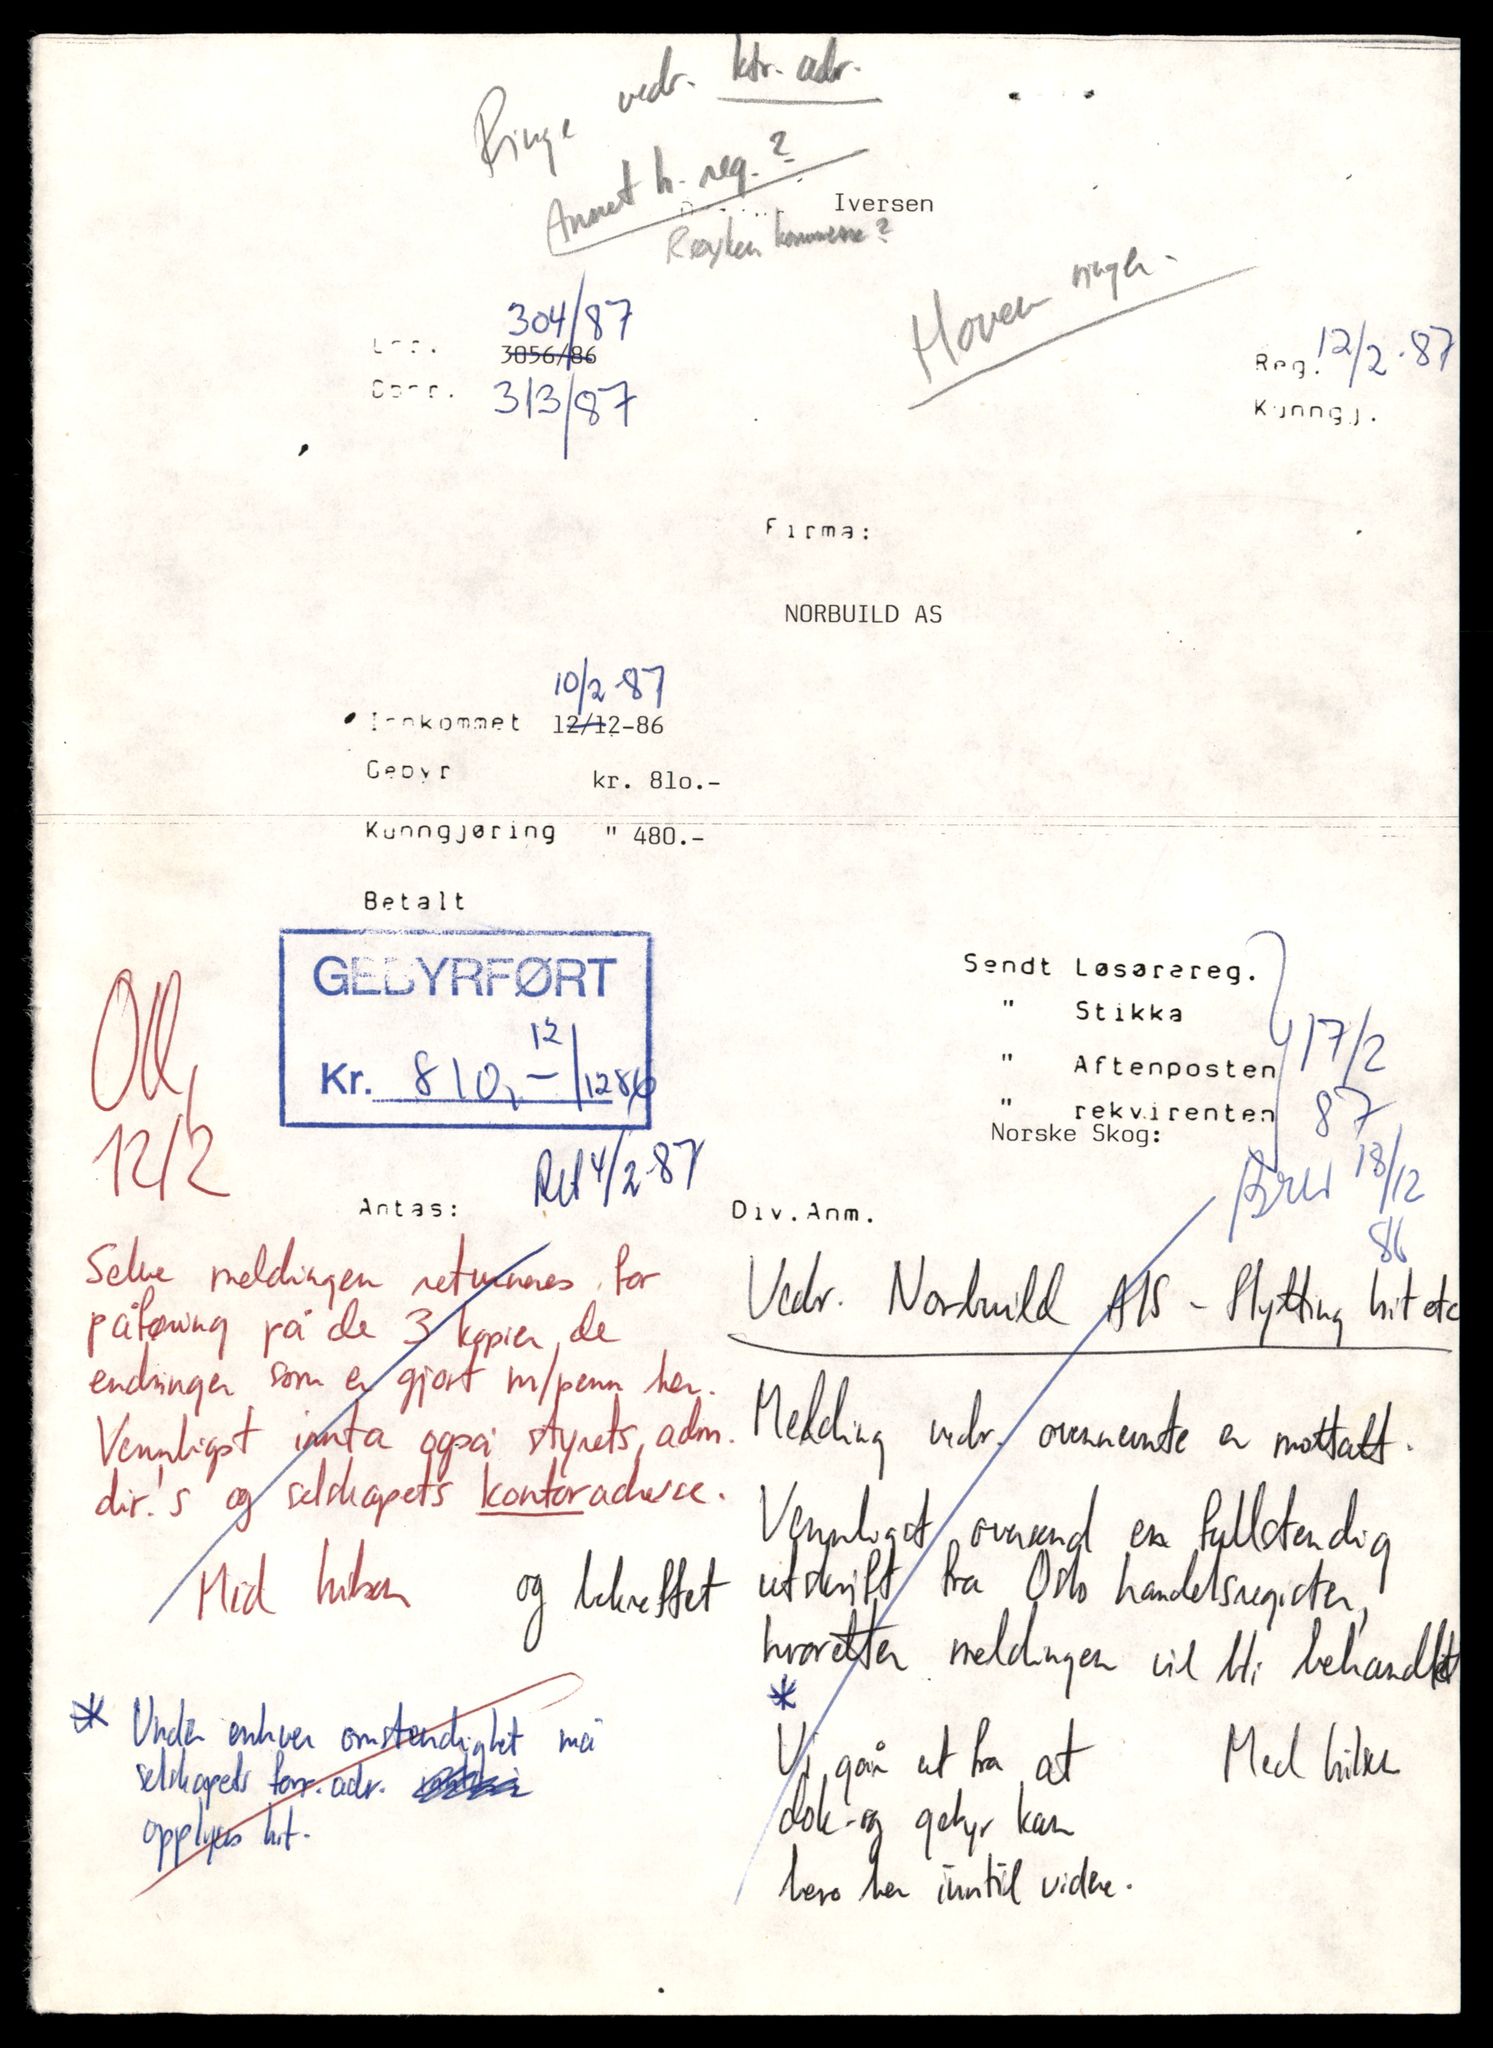 Ringe vedr. ktr. adr.
Annet h. reg.?
Iversen
Røyken kommune?
Hoven ringer.
304/87
Lnr. 3056/86
313/87
Reg. 12/2-87
Kunngj.
Firma:
NORBUILD AS
10/2-87
Innkommet 12/12-86
Gebyr kr. 81o.-
Kunngjøring " 480.-
Betalt
GEBYRFØRT
Kr. 810,- 12/1286
Sendt Løsørereg.
" Stikka
" Aftenposten 17/2
" rekvirenten 87
Norske Skog:
Brev 18/12
86
OK,
12/2
Ret 4/2-87
Antas:
Div. Anm.
Selve meldingen returneres for
påføring på de 3 kopier de
endringer som er gjort m/penn her.
Vennligst innta også styrets, adm.
dir.'s og selskapets kontoradresse.
Med hilsen
Vedr. Norbuild A/S - flytting hit etc
Melding vedr. ovennevnte er mottatt.
Vennligst oversend en fullstendig
og bekreftet utskrift fra Oslo handelsregister,
hvoretter meldingen vil bli behandlet
* Under enhver omstendighet må
selskapets forr. adr.
opplyses hit.
*
Vi går ut fra at
dok. og gebyr kan
bero her inntil videre.
Med hilsen